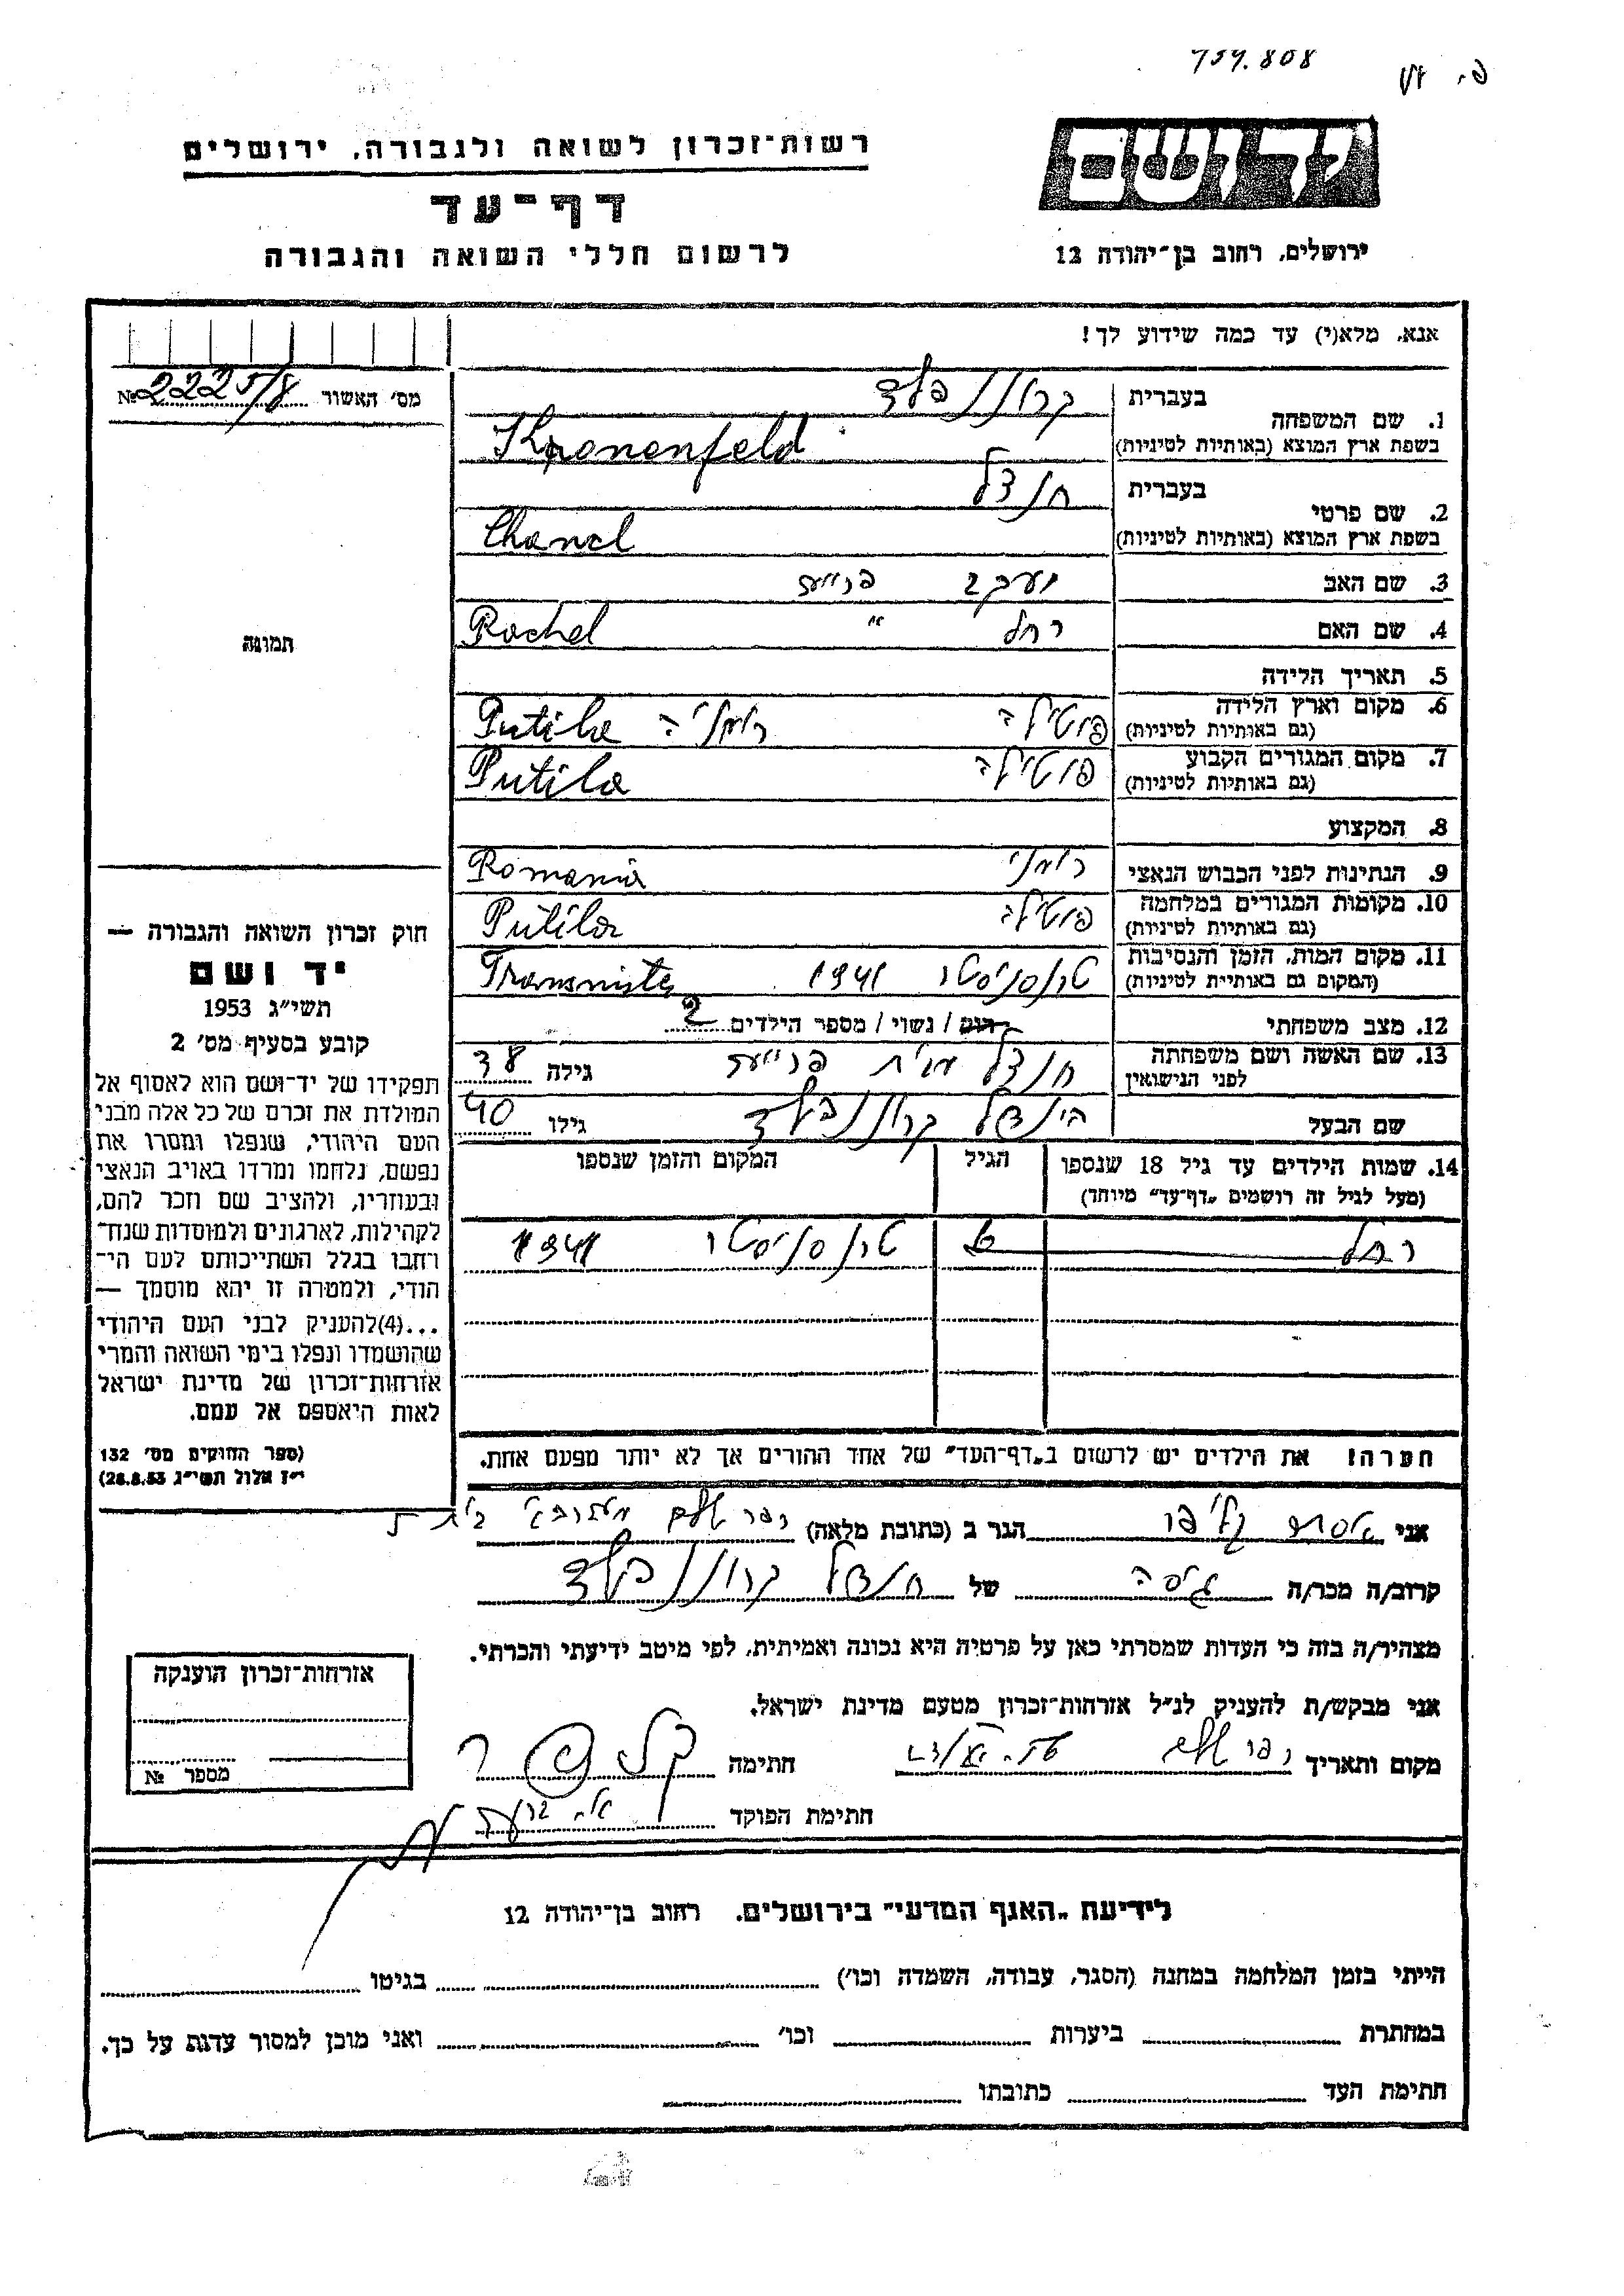 759.808
יד ושם
רשות־זכרון לשואה ולגבורה, ירושלים
דף־עד
לרשום חללי השואה והגבורה
ירושלים, רחוב בן־יהודה 12
אנא, מלא(י) עד כמה שידוע לך!
מס׳ האשור 2225/8 №
1. שם המשפחה
בעברית קרוננפלד
בשפת ארץ המוצא (באותיות לטיניות) Kronenfeld
2. שם פרטי
בעברית הנצל
בשפת ארץ המוצא (באותיות לטיניות) Chancl
3. שם האב יעקב
4. שם האם רחל " Rachel
5. תאריך הלידה
6. מקום וארץ הלידה
(גם באותיות לטיניות) פוטילה רומניה Putila
7. מקום המגורים הקבוע
(גם באותיות לטיניות) פוטילה Putila
8. המקצוע
9. הנתינות לפני הכבוש הנאצי רומני Romania
10. מקומות המגורים במלחמה
(גם באותיות לטיניות) פוטילה Putila
11. מקום המות, הזמן והנסיבות
(המקום גם באותיית לטיניות) טרנסניסטר 1941 Transnister
12. מצב משפחתי רווק / נשוי / מספר הילדים 2
13. שם האשה ושם משפחתה
לפני הנישואין חנצל מבית גילה 38
שם הבעל קרוננפלד גילו 40
14. שמות הילדים עד גיל 18 שנספו
(מעל לגיל זה רושמים „דף־עד״ מיוחד)
הגיל
המקום והזמן שנספו
רחל 6 טרנסניסטר 1941
הערה! את הילדים יש לרשום ב„דף־העד״ של אחד ההורים אך לא יותר מפעם אחת.
תמונה
חוק זכרון השואה והגבורה —
יד ושם
תשי״ג 1953
קובע בסעיף מס׳ 2
תפקידו של יד־ושם הוא לאסוף אל
המולדת את זכרם של כל אלה מבני
העם היהודי, שנפלו ומסרו את
נפשם, נלחמו ומרדו באויב הנאצי
ובעוזריו, ולהציב שם וזכר להם,
לקהילות, לארגונים ולמוסדות שנח־
רחבו בגלל השתייכותם לעם הי־
הודי, ולמטרה זו יהא מוסמך —
...(4)להעניק לבני העם היהודי
שהושמדו ונפלו בימי השואה והמרי
אזרחות־זכרון של מדינת ישראל
לאות היאספם אל עמם.
(ספר החוקים מס׳ 132
י״ז אלול תשי״ג 28.8.53)
אני אסתר קליפר הגר ב (כתובת מלאה)
קרוב/ה מכר/ה גיסה של חנצל קרוננפלד
מצהיר/ה בזה כי העדות שמסרתי כאן על פרטיה היא נכונה ואמיתית, לפי מיטב ידיעתי והכרתי.
אני מבקש/ת להעניק לנ״ל אזרחות־זכרון מטעם מדינת ישראל.
מקום ותאריך חתימה
חתימת הפוקד
אזרחות־זכרון הוענקה
מספר №
לידיעת „האגף המדעי״ בירושלים, רחוב בן־יהודה 12
הייתי בזמן המלחמה במחנה (הסגר, עבודה, השמדה וכו׳) בגיטו
במחתרת ביערות וכו׳ ואני מוכן למסור עדות על כך.
חתימת העד כתובתו